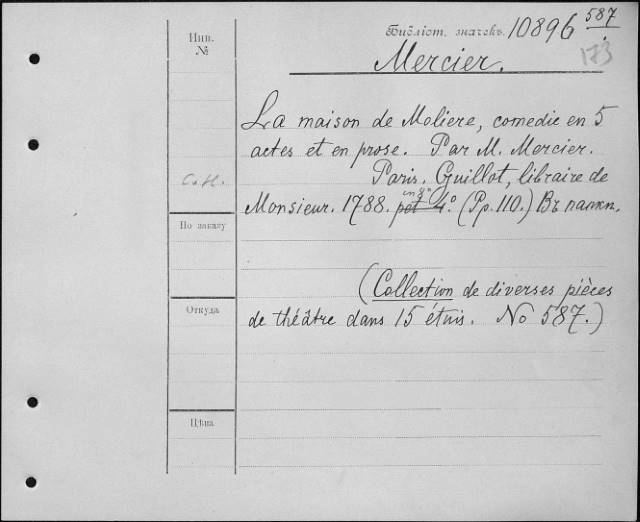 Инв.
№
Библіот. значекъ.
10896 587
173
Mercier.
La maison de Moliere, comedie en 5
actes et en prose. Par M. Mercier.
Paris. Guillot, libraire de
in 8°
Monsieur. 1788. pet 4.° (Pp. 110.) Въ папкп.
По заказу
(Collection de diverses pièces
de théâtre dans 15 étuis. No 587.)
Откуда
Цѣна